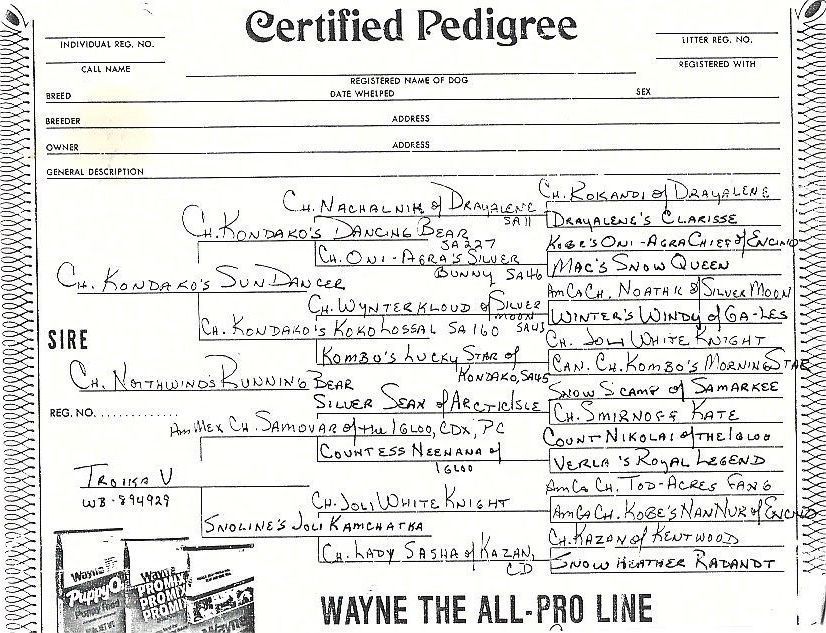 Certified Pedigree
INDIVIDUAL REG. NO.
LITTER REG. NO.
CALL NAME
REGISTERED WITH
REGISTERED NAME OF DOG
BREED
DATE WHELPED
SEX
BREEDER
ADDRESS
OWNER
ADDRESS
GENERAL DESCRIPTION
CH. KOKANDI of DRAYALENE
CH. NACHALNIK of DRAYALENE
SA11
DRAYALENE'S CLARISSE
CH. KONDAKO'S DANCING BEAR
SA227
KOBE'S ONI-AGRA CHIEF of ENCINO
CH. ONI-AGRA'S SILVER
BUNNY SA46
MAC'S SNOW QUEEN
CH. KONDAKO'S SUN DANCER
AM CA CH. NOATAK of SILVER MOON
CH. WYNTERKLOUD of SILVER
MOON SA43
WINTER'S WINDY of GA-LES
CH. KONDAKO'S KOKO LOSSAL SA160
CH. JOLI WHITE KNIGHT
KOMBO'S LUCKY STAR of
KONDAKO, SA45
CAN. CH. KOMBO'S MORNING STAR
SIRE
CH. NORTHWIND'S RUNNING BEAR
REG. NO.
SNOW SCAMP of SAMARKEE
SILVER SEAN of ARCTIC ISLE
CH. SMIRNOFF KATE
AM MEX CH. SAMOVAR of the IGLOO, CDX, PC
COUNT NIKOLAI of THE IGLOO
COUNTESS NEENANA of
IGLOO
VERLA'S ROYAL LEGEND
TROIKA V
WB-894929
AM CA CH. TOD-ACRES FANG
CH. JOLI WHITE KNIGHT
AM CA CH. KOBE'S NAN NUK of ENCINO
SNOLINE'S JOLI KAMCHATKA
CH. KAZAN of KENTWOOD
CH. LADY SASHA of KAZAN,
CD
SNOW HEATHER RADANDT
Wayne
Puppy
Wayne
PROMIX
PROMIX
PROMIX
Wayne
WAYNE THE ALL-PRO LINE